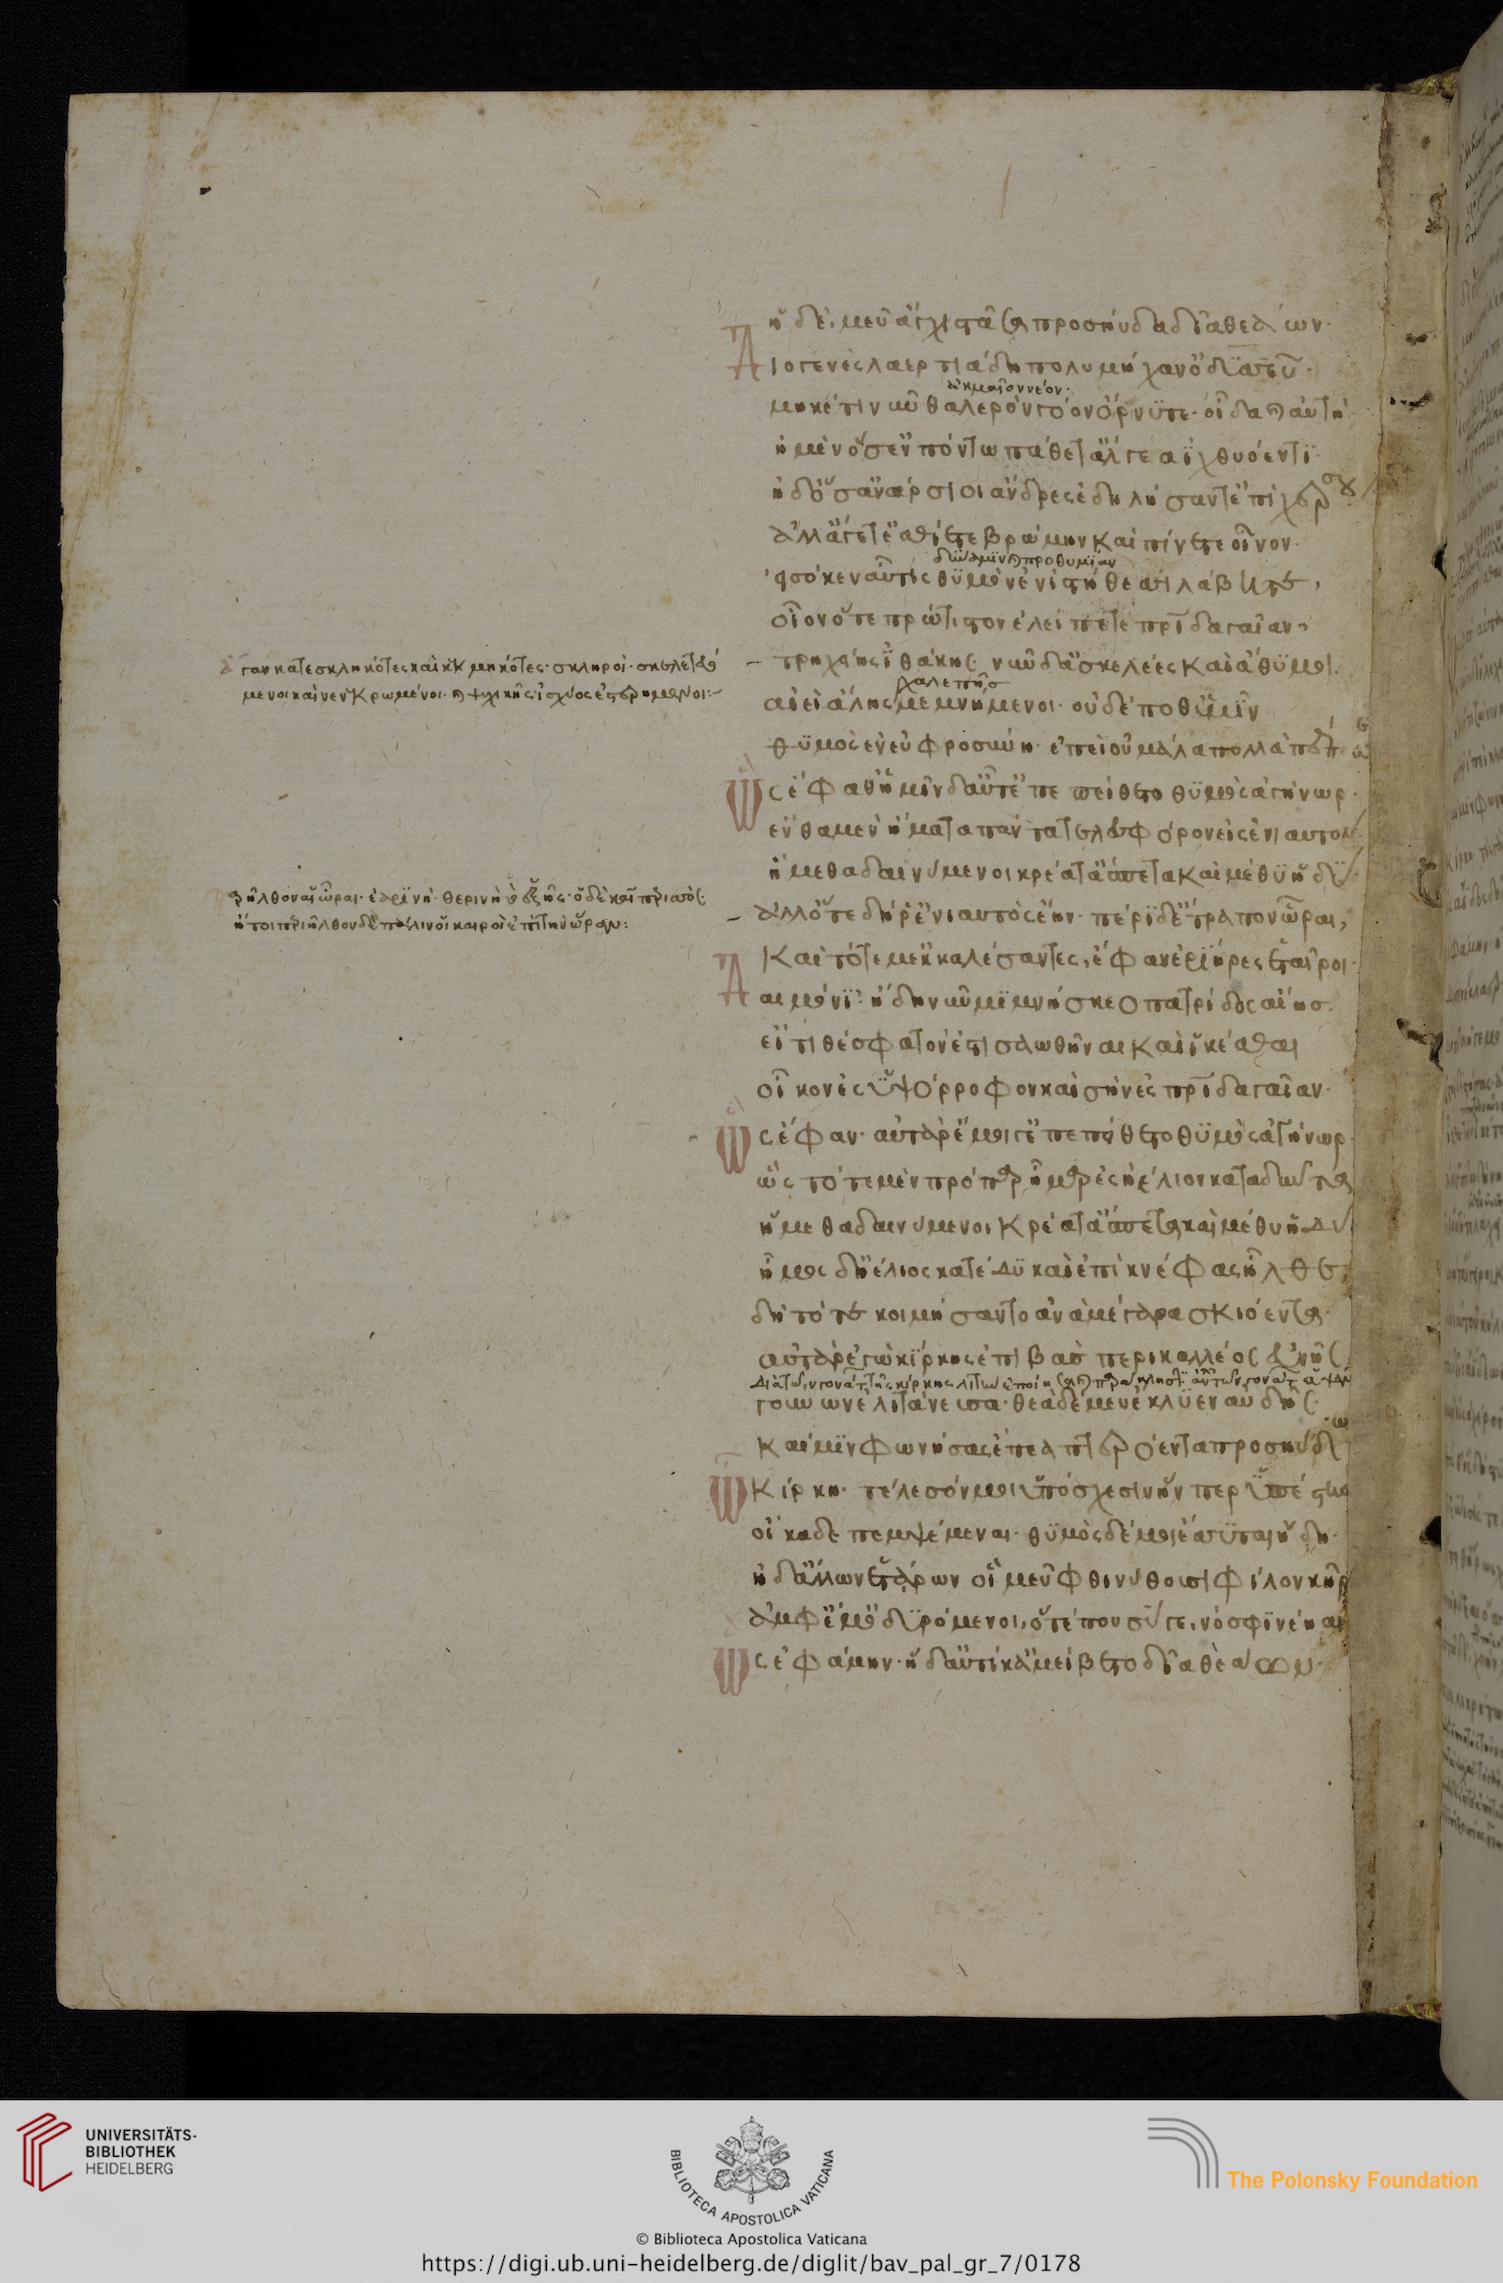 ἡ δέ μευ ἄγχι στᾶσα προσηύδα δῖα θεάων·
Διογενὲς λαερτιάδη πολυμήχαν' ὀδυσσεῦ·
ἀκμαῖον νέον·
μηκέτι νῦν θαλερὸν γόον ὄρνυτε· οἶδα καὶ αὐτὴ
ἠμὲν ὅσ' ἐν πόντω πάθετ' ἄλγεα ἰχθυόεντι·
ἠδ' ὅσ' ἀνάρσιοι ἄνδρες ἐδηλήσαντ' ἐπὶ χέρσου
ἀλλ' ἄγετ' ἐσθίετε βρώμην καὶ πίνετε οἶνον·
δύναμιν καὶ προθυμίαν
εἰσόκεν αὖτις θυμὸν ἐνὶ στήθεσσι λάβητε,
οἷον ὅτε πρώτιστον ἐλείπετε πατρίδα γαῖαν,
ἄγαν κατεσκληκότες καὶ κεκμηκότες· σκληροὶ· σκελετευό
μενοι καὶ νενεκρωμένοι· καὶ ψυχικῆς ἰσχύος ἐστερημένοι:-
τρηχείης ἰθάκης· νῦν δ' ἀσκελέες καὶ ἄθυμοι.
χαλεπῆς
αἰεὶ ἄλης μεμνημένοι· οὐδέ ποθ' ὑμῖν
θυμὸς ἐν εὐφροσύνη· ἐπειὴ μάλα πολλὰ πέποσθε
ὣς ἔφαθ' ἡμῖν δ' αὖτ' ἐπεπείθετο θυμὸς ἀγήνωρ·
ἔνθα μὲν ἤματα πάντα τελεσφόρον εἰς ἐνιαυτὸν
ἥμεθα δαινύμενοι κρέατ' ἄσπετα καὶ μέθυ ἡδύ·
ἐξῆλθον αἱ ὧραι· ἐαρινὴ· θερινὴ καὶ ἑξῆς·
ἤτοι περιῆλθον δὲ πάλιν οἱ καιροὶ ἐπὶ τὴν ὥραν:
ἀλλ' ὅτε δή ῥ' ἐνιαυτὸς ἔην· περὶ δ' ἔτραπον ὧραι,
καὶ τότε μ' ἐκκαλέσαντες, ἔφαν ἐρίηρες ἑταῖροι·
Δαιμόνι' ἤδη νῦν μιμνήσκεο πατρίδος αἴης·
εἴ τι θέσφατόν ἐστι σαωθῆναι καὶ ἱκέσθαι
οἶκον ἐς ὑψόρροφον καὶ σὴν ἐς πατρίδα γαῖαν·
ὣς ἔφαν· αὐτὰρ ἔμοιγ' ἐπεπείθετο θυμὸς ἀγήνωρ·
ὣς τότε μὲν πρόπαν ἦμαρ ἐς ἠέλιον καταδύντα
ἥμεθα δαινύμενοι κρέατ' ἄσπετα καὶ μέθυ ἡδύ
ἦμος δ' ἠέλιος κατέδυ καὶ ἐπὶ κνέφας ἦλθε,
δὴ τότε κοιμήσαντο ἀνὰ μέγαρα σκιόεντα·
αὐτὰρ ἐγὼ κίρκης ἐπιβὰς περικαλλέος εὐνῆς·
γούνων ἐλιτάνευσα· θεὰ δέ μευ ἔκλυεν αὐδῆς·
καί μιν φωνήσας ἔπεα πτερόεντα προσηύδων
ὦ Κίρκη· τέλεσόν μοι ὑπόσχεσιν ἥνπερ ὑπέστης
οἴκαδε πεμψέμεναι· θυμὸς δέ μοι ἔσσυται ἤδη·
ἠδ' ἄλλων ἑτάρων οἵ μευ φθινύθουσι φίλον κῆρ
ἀμφ' ἔμ' ὀδυρόμενοι, ὅτέ που σύ γε, νόσφι γένηαι
ὣς ἐφάμην· ἡ δ' αὐτίκ' ἀμείβετο δῖα θεάων·
UNIVERSITÄTS-
BIBLIOTHEK
HEIDELBERG
BIBLIOTECA APOSTOLICA VATICANA
The Polonsky Foundation
© Biblioteca Apostolica Vaticana
https://digi.ub.uni-heidelberg.de/diglit/bav_pal_gr_7/0178